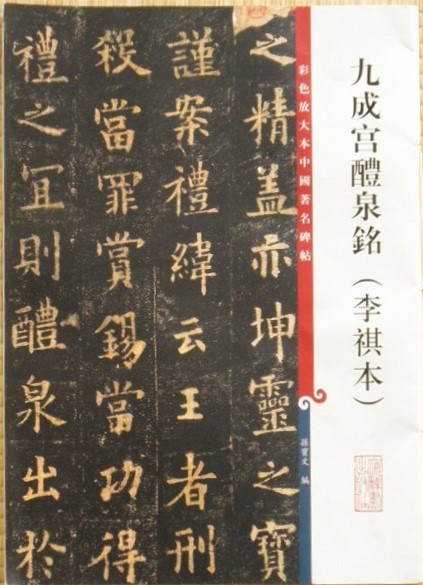 九成宮醴泉銘(李祺本)
彩色放大本中國著名碑帖
孫寶文 編
之精蓋亦坤靈之寶
謹案禮緯云王者刑
殺當罪賞錫當功得
禮之宜則醴泉出於